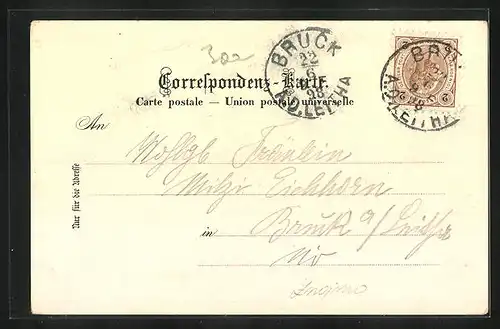 300
BRUCK
22
6
98
A.D.LEITHA
BRUCK
A.D.LEITHA
Correspondenz-Karte.
Carte postale — Union postale universelle
An
Wohlgb Fräulein
Mitzi Eichhorn
in Bruck a/Leitha
Nur für die Adresse